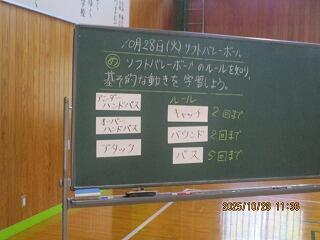 10月28日(火) ソフトバレーボール
め ソフトバレーボールのルールを知り、
基本的な動きを学習しよう。
アンダー
ハンドパス
オーバー
ハンドパス
アタック
ルール
キャッチ 2回まで
バウンド 2回まで
パス 5回まで
2025/10/29 11:36